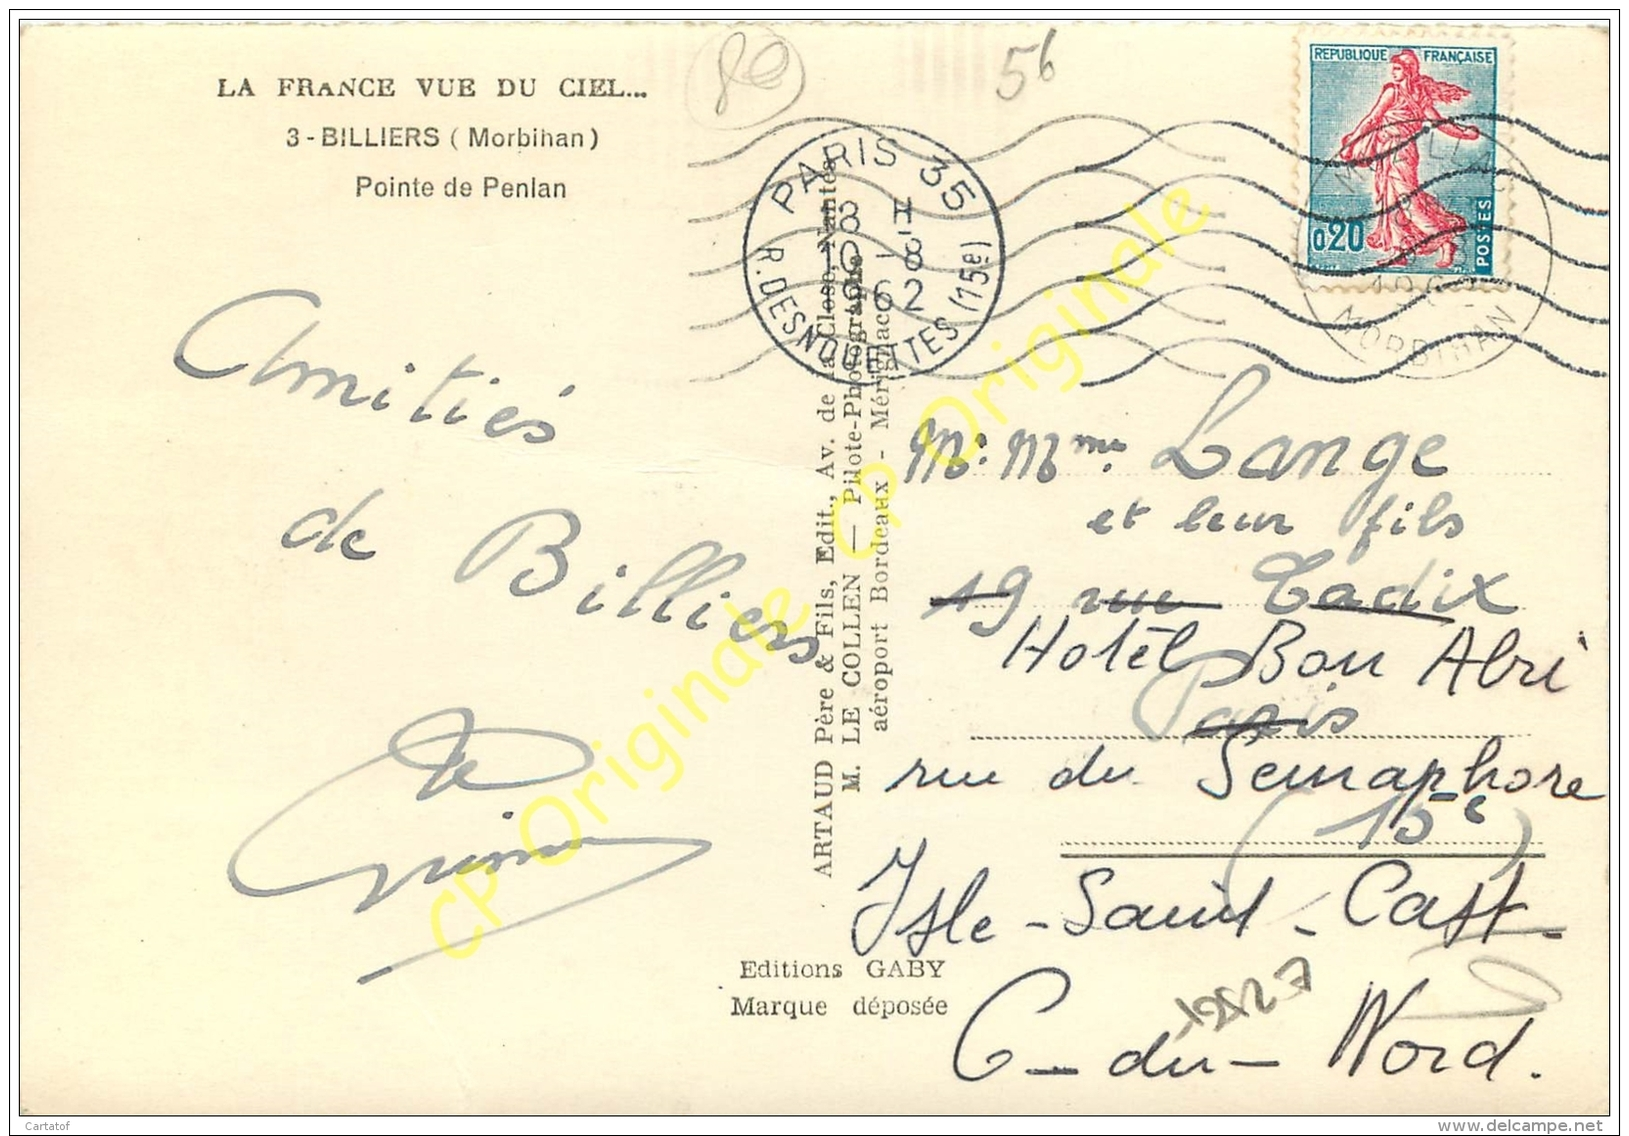 LA FRANCE VUE DU CIEL...
3 - BILLIERS ( Morbihan )
Pointe de Penlan
56
REPUBLIQUE FRANÇAISE
0,20
POSTES
PARIS 35
18 H
10 - 8
1962
R. DESNOUETTES (15e)
MUZILLAC
MORBIHAN
Amitiés
de Billiers
ARTAUD Père & Fils, Edit., Av. de la Close, Nantes
M. LE COLLEN — Pilote-Photographe
aéroport Bordeaux - Mérignac
M. Mme Lange
et leur fils
19 rue Cadix
Hotel Bon Abri
Paris
rue du Semaphore
(15e)
Isle-Saint-Cast-
C-du-Nord.
Editions GABY
Marque déposée
CP Originale CP Originale CP Originale
Cartatof
www.delcampe.net